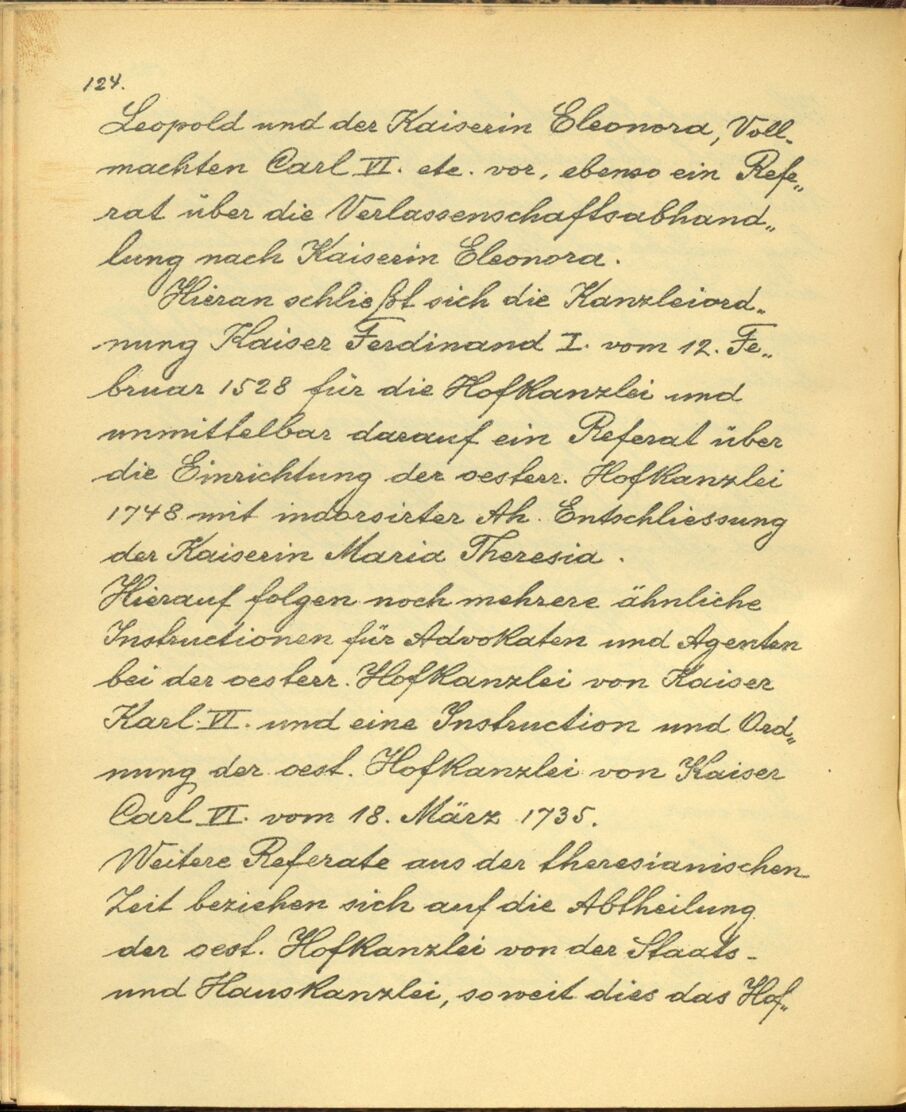 124.
Leopold und der Kaiserin Eleonora, Voll-
machten Carl VI. etc. vor, ebenso ein Refe„
rat über die Verlassenschaftsabhand„
lung nach Kaiserin Eleonora.
Hieran schließt sich die Kanzleiord„
nung Kaiser Ferdinand I. vom 12. Fe„
bruar 1528 für die Hofkanzlei und
unmittelbar darauf ein Referat über
die Einrichtung der oesterr. Hofkanzlei
1748 mit indorsirter Ah. Entschliessung
der Kaiserin Maria Theresia.
Hierauf folgen noch mehrere ähnliche
Instructionen für Advokaten und Agenten
bei der oesterr. Hofkanzlei von Kaiser
Karl VI. und eine Instruction und Ord„
nung der oest. Hofkanzlei von Kaiser
Carl VI. vom 18. März 1735.
Weitere Referate aus der theresianischen
Zeit beziehen sich auf die Abtheilung
der oest. Hofkanzlei von der Staats-
und Hauskanzlei, soweit dies das Hof„